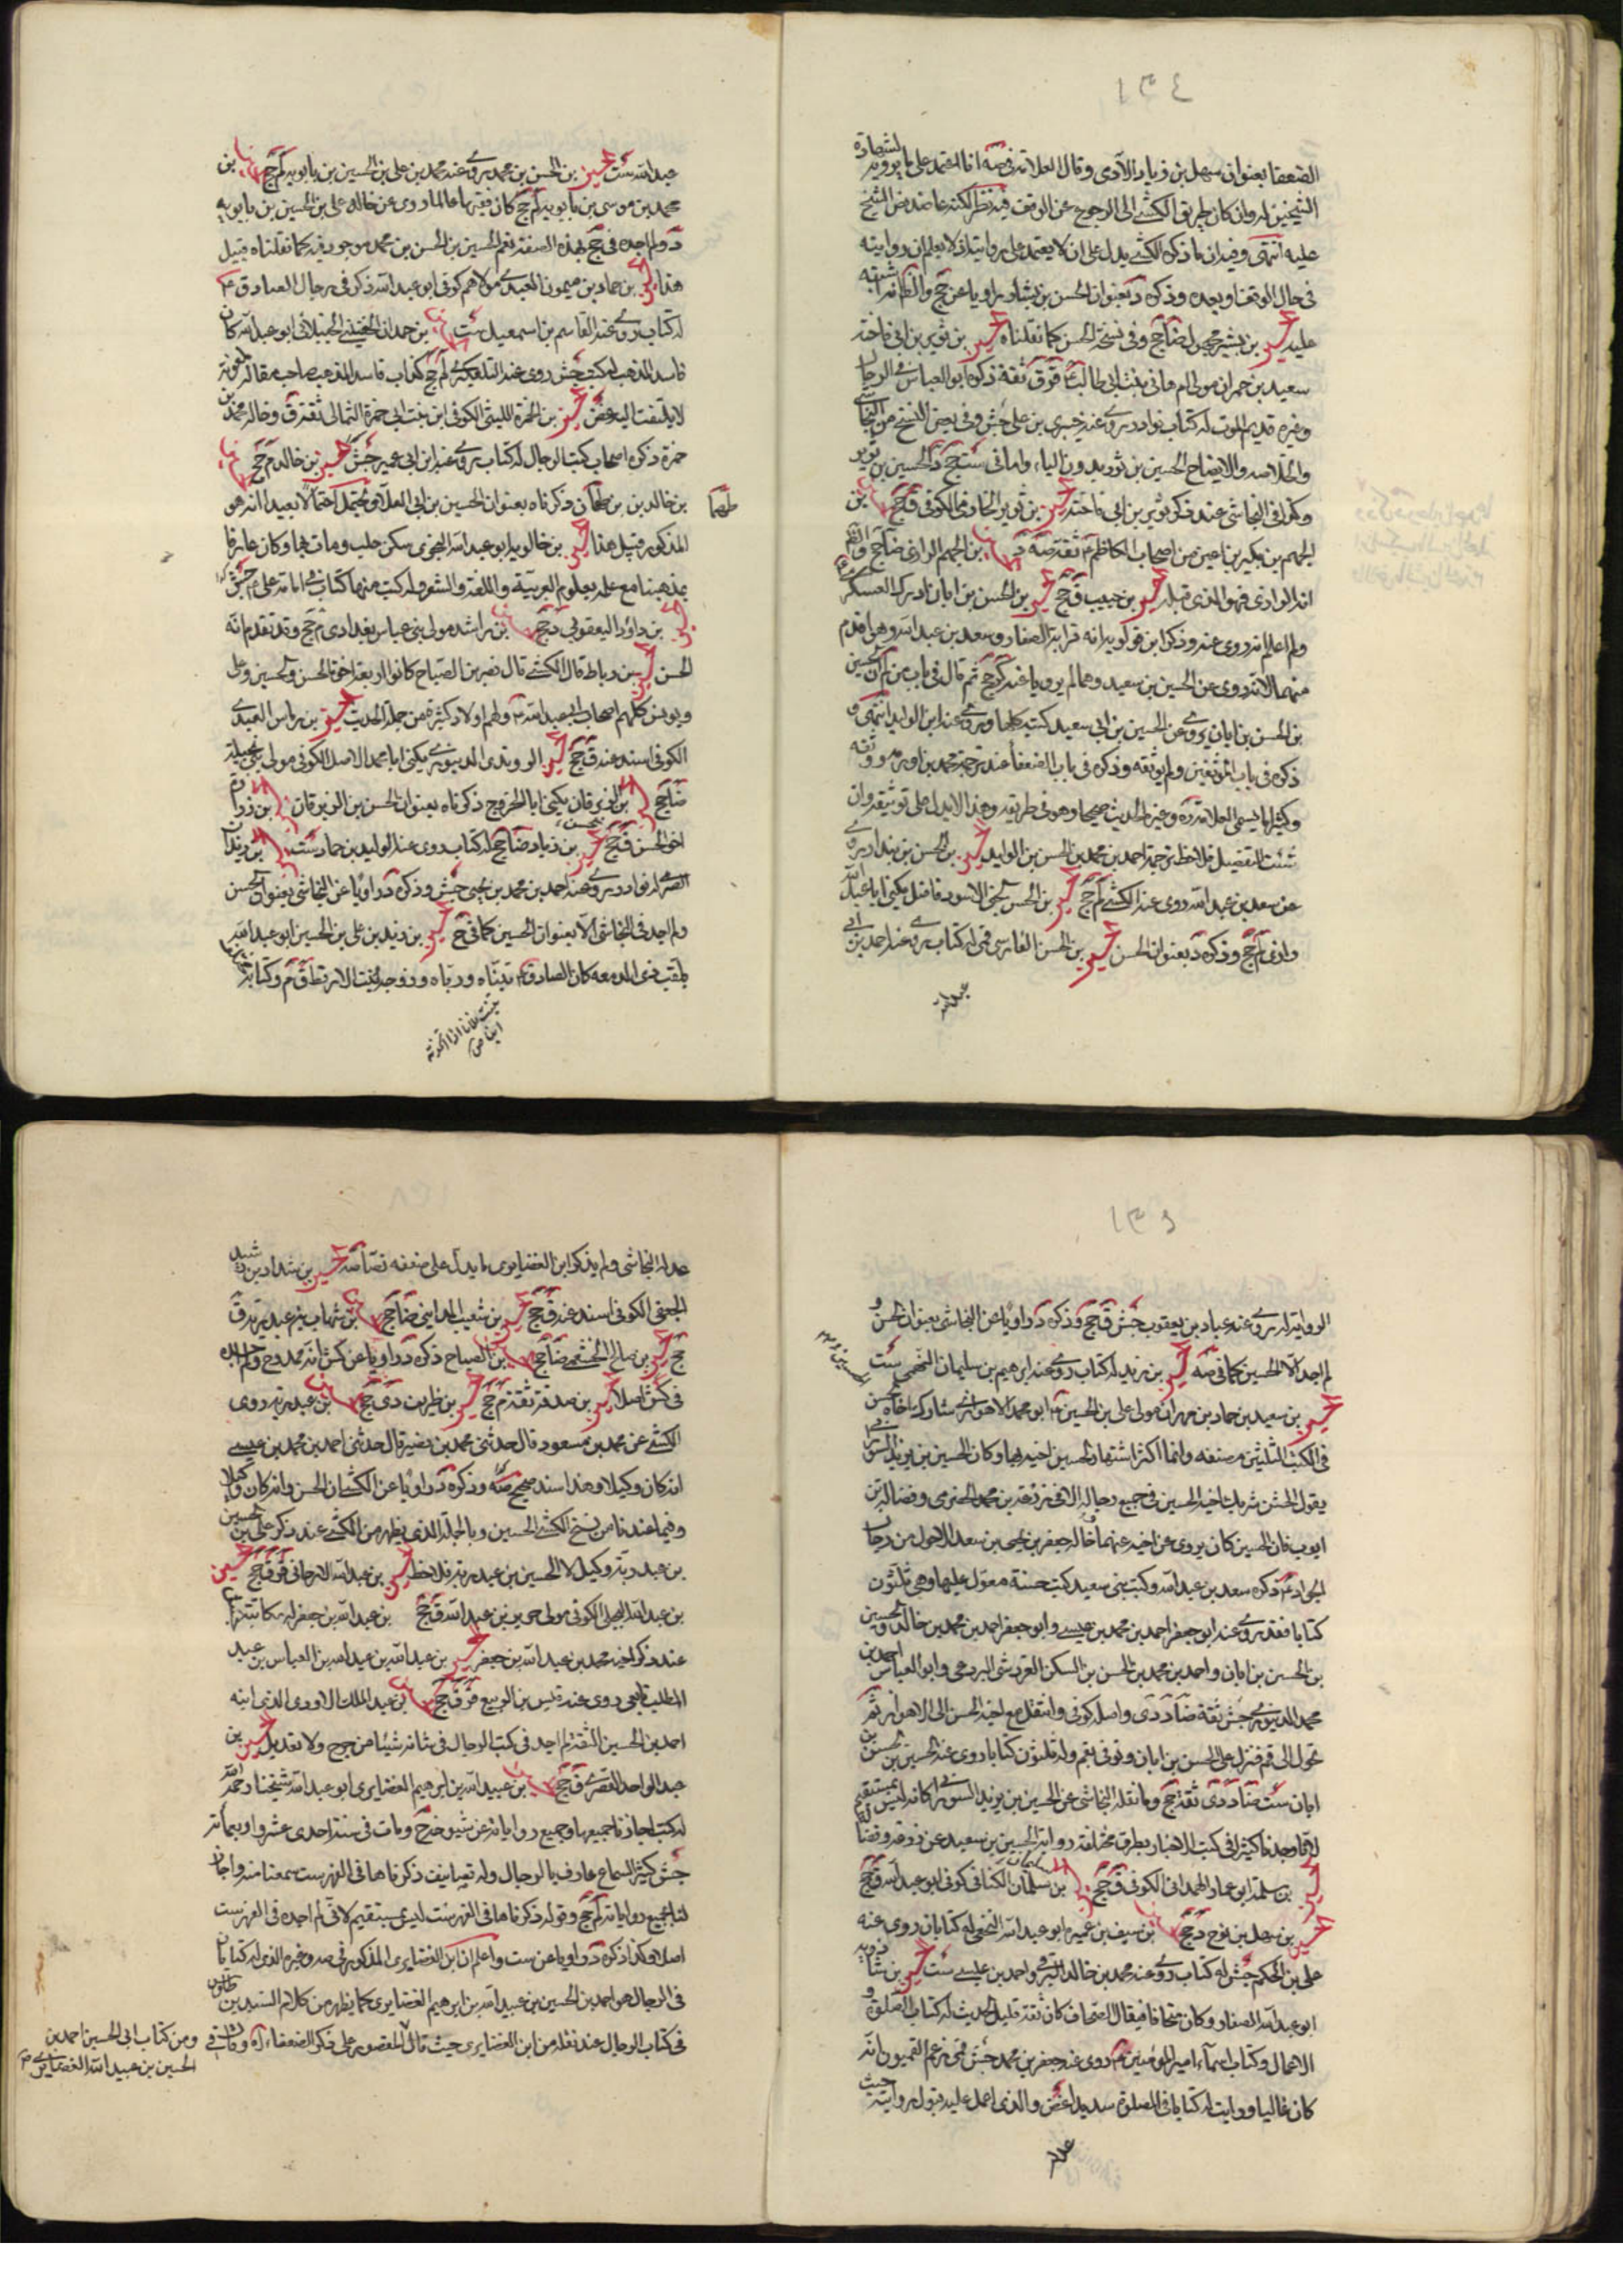 ١٣٤
الضعفا بعنوان سهل بن زياد الآدمى وقال العلامة فى صه انا اعتمد على ما يرويه لشهادة
الشيخين له وان كان طريق الكشى الى الرجوع عن الوقف فيه نظر لكنه عاضد نص الشيخ
عليه انتهى وفيه ان ما ذكره الكشى يدل على ان لا يعتمد على روايته اذ لا يعلم ان روايته
فى حال الوقف او بعده وذكره د بعنوان الحسن بن بشار راويا عن جخ والظاهر انه اشتبه
عليه حسين بن بشير مجهول ضا جخ وفى نسخة الحسن كما نقلناه حسين بن ثوير بن ابى فاخته
سعيد بن حمران مولى ام هانى بنت ابى طالب قر ق ثقة ذكره ابو العباس فى الرجال
وغيره قديم الموت له كتاب نوادر روى عنه خيبرى بن على جش وفى بعض النسخ من النجاشى
والخلاصه والايضاح الحسين بن ثور بدون الياء واما فى ست جخ د الحسين بن ثوير
وكذا فى النجاشى عند ذكر ثوير بن ابى فاخته حسين بن ثوير الخازمى الكوفى ق جخ حسين بن
الجهم بن بكير بن اعين من اصحاب الكاظم ع ثقة صه د حسين بن الجهم الرازى ضا جخ والظ
انه الرازى فهو الذى قبله حسين بن حبيب ق جخ حسين بن الحسن بن ابان ادرك العسكرى ع
ولم اعلم انه روى عنه وذكر ابن قولويه انه قرابة الصفار وسعد بن عبد الله وهو اقدم
منهما لانه روى عن الحسين بن سعيد وهما لم يرويا عنه كر جخ ثم قال فى باب من لم ان الحسين
بن الحسن بن ابان روى عن الحسين بن سعيد كتبه كلها وروى عنه ابن الوليد انتهى و
ذكره فى باب الموثقين ولم يوثقه وذكره فى باب الضعفا عند ترجمة محمد بن اورمه ووثقه
وكثيرا ما يسمى العلامة ره وغيره الحديث صحيحا وهو فى طريقه وهذا لا يدل على توثيقه وان
شئت التفصيل فلاحظ ترجمة احمد بن محمد بن الحسن بن الوليد حسين بن الحسن بن بندار يروى
عن سعد بن عبد الله روى عنه الكشى لم جخ حسين بن الحسن الحسنى الاسود فاضل يكنى ابا عبد الله
رازى لم جخ وذكره د بعنوان الحسن حسين بن الحسن الفارسى قمى له كتاب روى عنه احمد بن ابى
عبد الله
عبد الله ست حسين بن الحسن بن محمد روى عنه محمد بن على بن الحسين بن بابويه لم جخ حسين بن
محمد بن موسى بن بابويه لم جخ كان فقيها عالما روى عن خاله على بن الحسين بن بابويه
د ولم اجده فى جخ بهذه الصفة نعم الحسين بن الحسن بن محمد موجود فيه كما نقلناه قبيل
هذا حسين بن حماد بن ميمون العبدى مولاهم كوفى ابو عبد الله ذكر فى رجال الصادق ع
له كتاب روى عنه القاسم بن اسمعيل ست حسين بن حمدان الخصيبى الجنبلانى ابو عبد الله كان
فاسد المذهب له كتب جش روى عنه التلعكبرى لم جخ كذاب فاسد المذهب صاحب مقالة ملعونة
لا يلتفت اليه غض حسين بن حمزة الليثى الكوفى ابن بنت ابى حمزة الثمالى ثقة ق وخاله محمد بن
حمزة ذكره اصحاب كتب الرجال له كتاب روى عنه ابن ابى عمير جش حسين بن خالد م جخ حسين
بن خالد بن طهمان ذكرناه بعنوان الحسين بن ابى العلا ويحتمل احتمالا بعيدا انه هو
طهما
المذكور قبيل هذا حسين بن خالويه ابو عبد الله النحوى سكن حلب ومات بها وكان عارفا
بمذهبنا مع علمه بعلوم العربية واللغة والشعر وله كتب منها كتاب فى امامة على ع جش
حسين بن داود اليعقوبى د جخ حسين بن راشد مولى بنى عباس بغدادى م جخ وقد تقدم انه
الحسن حسين بن رباط قال الكشى قال نصر بن الصباح كانوا اربعة اخوة الحسن والحسين وعلى
ويونس كلهم اصحاب ابى عبد الله ع ولهم اولاد كثيرة من حملة الحديث حسين بن رماس العبدى
الكوفى اسند عنه ق جخ حسين الروندى الدينورى يكنى ابا محمد الاصل الكوفى مولى بجيلة
ضا جخ حسين بن الزبرقان يكنى ابا الخزرج ذكرناه بعنوان الحسن بن الزبرقان حسين بن زرارة
اخو الحسن ق جخ حسين بن زياد ضا جخ له كتاب روى عنه الوليد بن حماد ست حسين بن زيدان
الصرمى له نوادر روى عنه احمد بن محمد بن يحيى جش وذكره د راويا عن النجاشى بعنوان الحسن
ولم اجد فى النجاشى الا بعنوان الحسين كما فى ح حسين بن زيد بن على بن الحسين ابو عبد الله
يلقب ذى الدمعة كان الصادق ع تبناه ورباه وزوجه بنت الارقط ق م وكتابه
١٣٥
الرواية له روى عنه عباد بن يعقوب جش ق جخ وذكره د راويا عن النجاشى بعنوان الحسن و
لم اجد الا الحسين كما فى صه حسين بن زيد له كتاب روى عنه ابرهيم بن سليمان النهمى ست
حسين بن سعيد بن حماد بن مهران مولى على بن الحسين ع ابو محمد الاهوازى شارك اخاه الحسن
فى الكتب الثلثين مصنفه وانما اكثر اشتهار الحسين اخيه بها وكان الحسين بن يزيد السورى
يقول الحسن شريك اخيه الحسين فى جميع رجاله الا فى زرعة بن محمد الحضرمى وفضالة بن
ايوب فان الحسين كان يروى عن اخيه عنهما خاله جعفر بن يحيى بن سعد الاحول من رجال
الجواد ع ذكره سعد بن عبد الله وكتب بنى سعيد كتب حسنة معول عليها وهى ثلثون
كتابا فقد روى عنه ابو جعفر احمد بن محمد بن عيسى وابو جعفر احمد بن محمد بن خالد والحسين
بن الحسن بن ابان واحمد بن محمد بن الحسن بن السكن القرشى البردعى وابو العباس احمد بن
محمد الدينورى جش ثقة ضا د دى واصله كوفى وانتقل مع اخيه الحسن الى الاهواز ثم
تحول الى قم فنزل على الحسن بن ابان وتوفى بقم وله ثلثون كتابا روى عنه الحسين بن الحسن بن
ابان ست ضا د دى ثقة جخ وما نقله النجاشى عن الحسين بن يزيد السورى كانه ليس بمستقيم
لانا وجدنا كثيرا فى كتب الاخبار بطرق مختلفة رواية الحسين بن سعيد عن زرعة وفضالة
حسين بن سلمة ابن عماد الهمدانى الكوفى ق جخ حسين بن سلمان الكنانى كوفى ابو عبد الله ق جخ
حسين بن سهل بن نوح د جخ حسين بن سيف بن عميرة ابو عبد الله النخعى له كتابان روى عنه
على بن الحكم جش له كتاب روى عنه محمد بن خالد البرقى واحمد بن عيسى ست حسين بن شاذويه
ابو عبد الله الصفار وكان صحافا فيقال الصحاف كان ثقة قليل الحديث له كتاب الصلوة و
الاعمال وكتاب اسماء امير المؤمنين ع روى عنه جعفر بن محمد جش قمى زعم القميون انه
كان غاليا ورايت له كتابا فى الصلوة سديدا غض والذى اعمل عليه قبول روايته حيث
عدله
عدله النجاشى ولم يذكر ابن الغضايرى ما يدل على ضعفه نصا صه حسين بن شداد بن رشيد
الجعفى الكوفى اسند عنه ق جخ حسين بن شعيب المداينى ضا جخ حسين بن شهاب بن عبد ربه ق
جخ حسين بن صالح الخثعمى ضا جخ حسين بن الصباح ذكره د راويا عن كش انه ممدوح ولم اجده
فى كش اصلا حسين بن صدقة ثقة م جخ حسين بن ظريف دى جخ حسين بن عبد ربه روى
الكشى عن محمد بن مسعود قال حدثنى محمد بن نصير قال حدثنى احمد بن محمد بن عيسى
انه كان وكيلا وهذا سند صحيح صه وذكره د راويا عن الكشى ان الحسن وانه كان وكيلا
وفيما عندنا من نسخ الكشى الحسين وبالجملة الذى يظهر من الكشى عند ذكر على بن الحسين
بن عبد ربه وكيل لا الحسين بن عبد ربه فلاحظ حسين بن عبد الله الارجانى قر ق جخ حسين
بن عبد الله البجلى الكوفى مولى جرير بن عبد الله ق جخ بن عبد الله بن جعفر له مكاتبة
عند ذكر اخيه محمد بن عبد الله بن جعفر حسين بن عبد الله بن عبيد الله بن العباس بن عبد
المطلب تابعى روى عنه قيس بن الربيع قر ق جخ حسين بن عبد الملك الاودى الذى ابنه
احمد بن الحسين الثقة لم اجد فى كتب الرجال فى شانه شيئا من جرح ولا تعديل حسين بن
عبد الواحد القصرى ق جخ حسين بن عبيد الله بن ابرهيم الغضايرى ابو عبد الله شيخنا رحمه الله
له كتب اجازنا جميعها وجميع رواياته عن شيوخه ومات فى سنة احدى عشر واربعمائة
جش كثير السماع عارف بالرجال وله تصانيف ذكرناها فى الفهرست سمعنا منه واجاز
لنا بجميع رواياته لم جخ وقوله ذكرناها فى الفهرست ليس بمستقيم لانى لم اجده فى الفهرست
اصلا وكذا ذكره د راويا عن ست واعلم ان ابن الغضايرى المذكور فى صه وغيره الذى له كتابان
فى الرجال هو احمد بن الحسين بن عبيد الله بن ابرهيم الغضايرى كما يظهر من كلام السيد بن طاوس
فى كتاب الرجال عند نقله من ابن الغضايرى حيث قال المقصور على ذكر الضعفاء اه وقال فى
ومن كتاب ابى الحسين احمد بن
الحسين بن عبيد الله الغضايرى